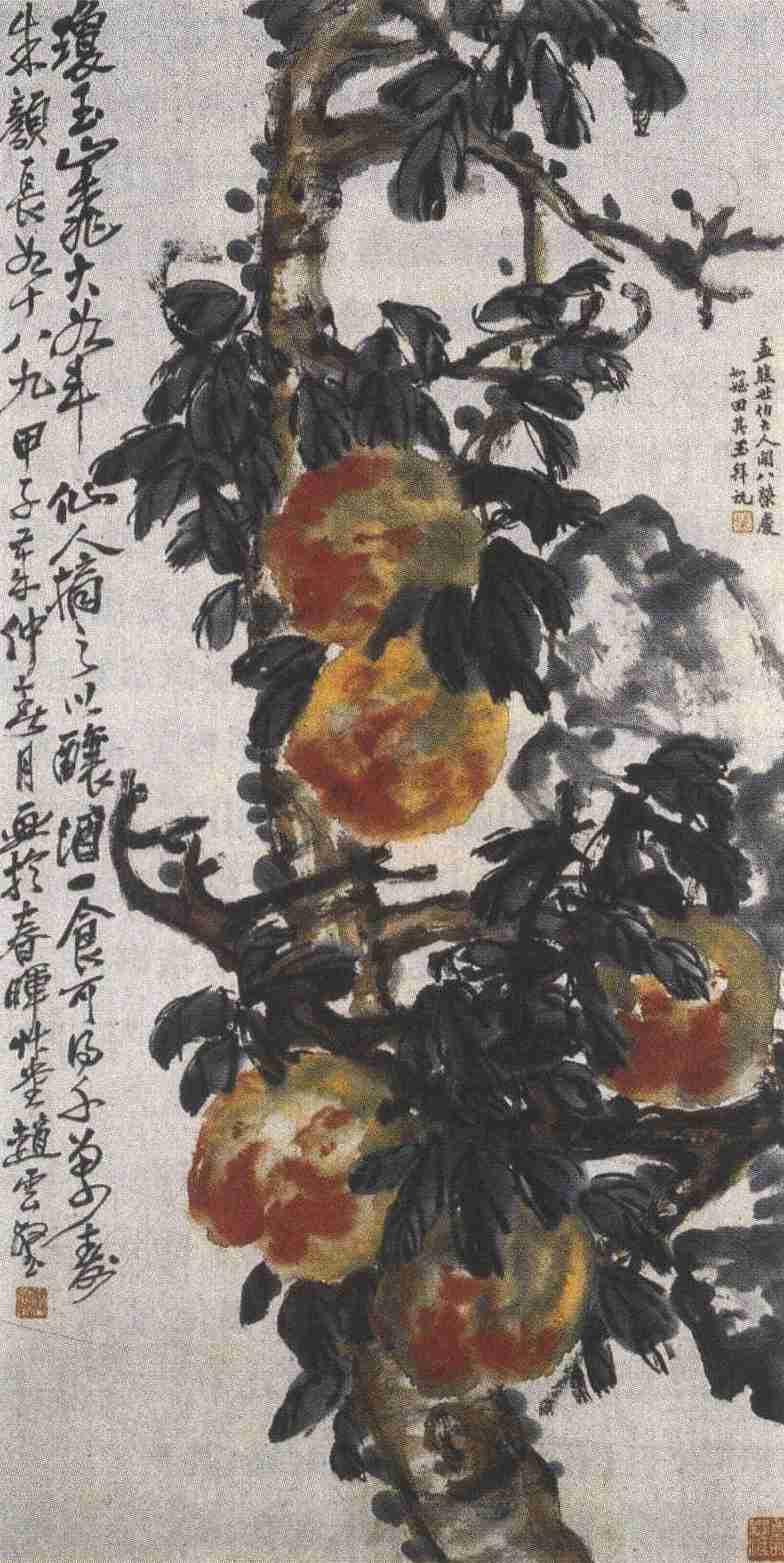 孟熊世伯大人開八榮慶
姪田其玉拜祝
瓊玉山桃大如斗仙人摘之以釀酒一食可得千萬壽
朱顏長如十八九甲子年仲春月畫於春暉草堂趙雲壑